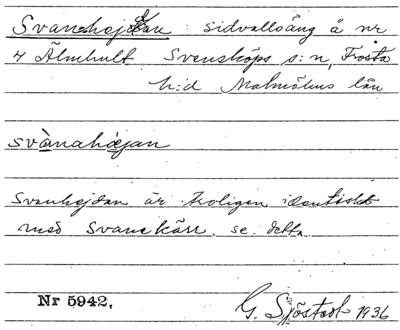 Svanehejdan : sidvallsäng å nr
4 Älmhult Svensköps s:n, Frosta
h:d Malmöhus län
svànahæjan
Svanhejdan är troligen identiskt
med Svanekärr. se. detta.
Nr 5942.
G. Sjöstedt 1936